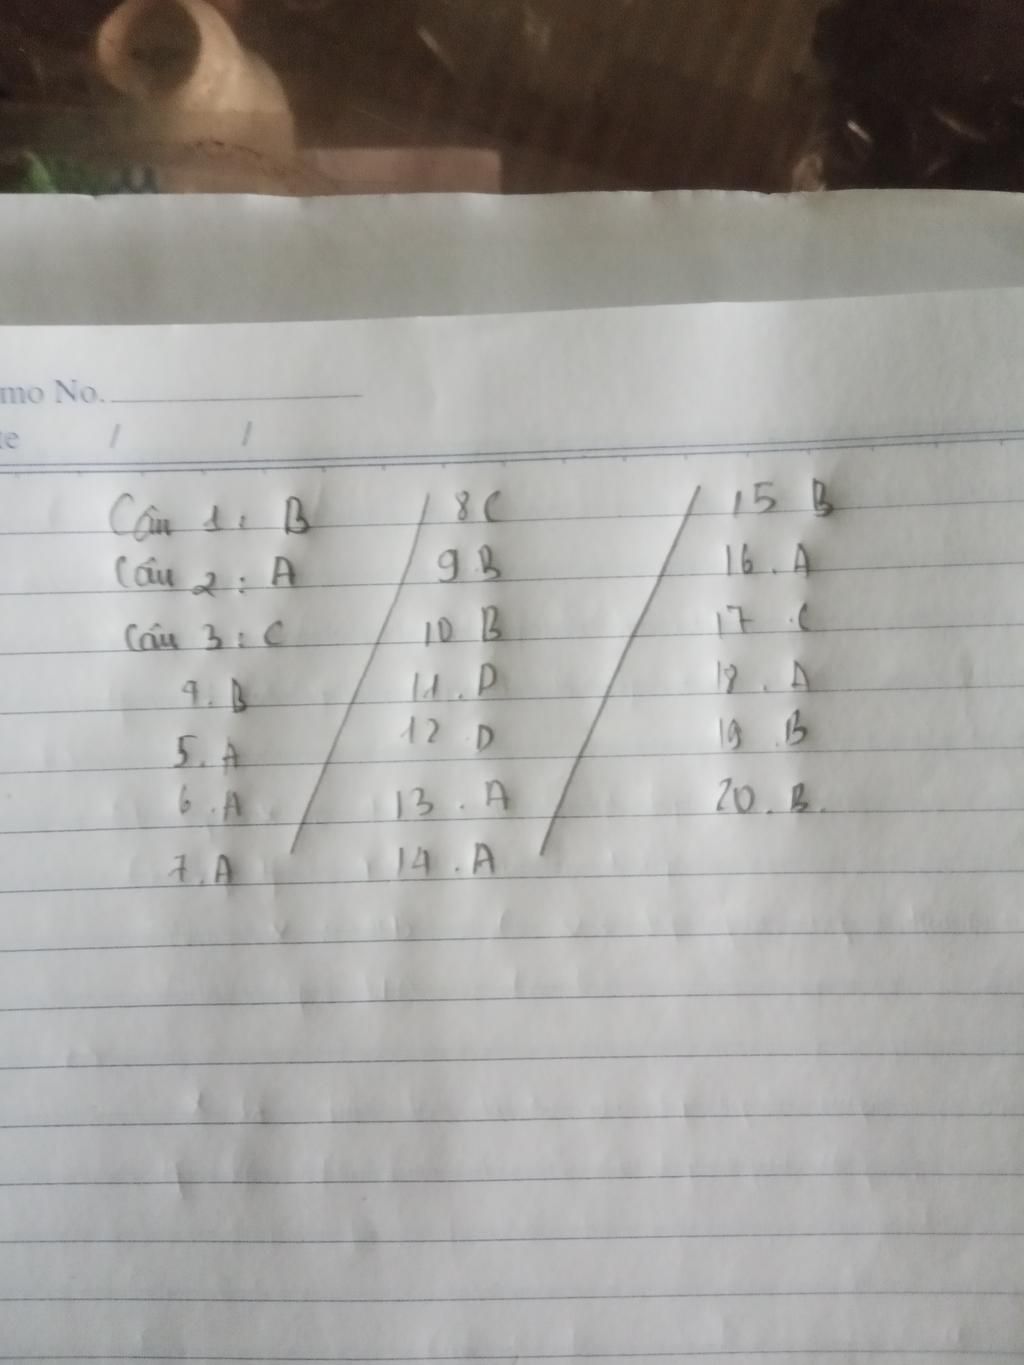 mo No.
te / /
Câu 1: B
Câu 2: A
Câu 3: C
4. B
5. A
6. A
7. A
8 C
9. B
10 B
11. D
12 D
13. A
14. A
15 B
16. A
17. C
18. A
19 B
20. B.